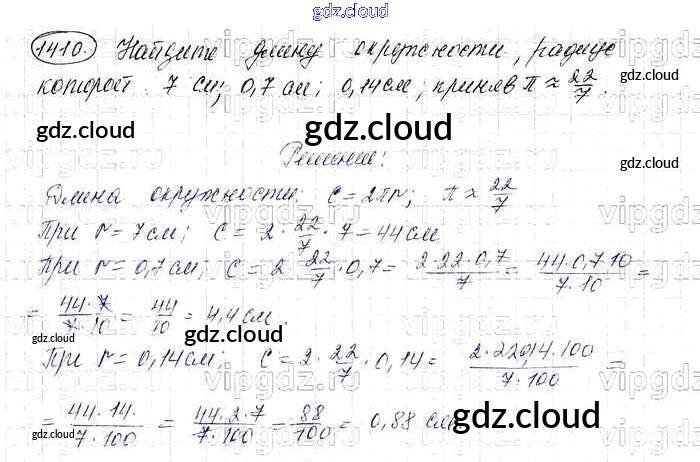 gdz.cloud
1410. Найдите длину окружности, радиус
которой 7 см; 0,7 см; 0,14 см, приняв π ≈ 22/7.
gdz.cloud gdz.cloud gdz.cloud
Решение:
Длина окружности: C = 2πr; π ≈ 22/7
При r = 7 см; C = 2 · 22/7 · 7 = 44 см
При r = 0,7 см; C = 2 · 22/7 · 0,7 = 2·22·0,7/7 = 44·0,7·10/7·10 =
= 44·7/7·10 = 44/10 = 4,4 см.
gdz.cloud gdz.cloud gdz.cloud
При r = 0,14 см; C = 2 · 22/7 · 0,14 = 2·22 0,14·100/7·100 =
= 44·14/7·100 = 44·2·7/7·100 = 88/100 = 0,88 см
gdz.cloud gdz.cloud gdz.cloud